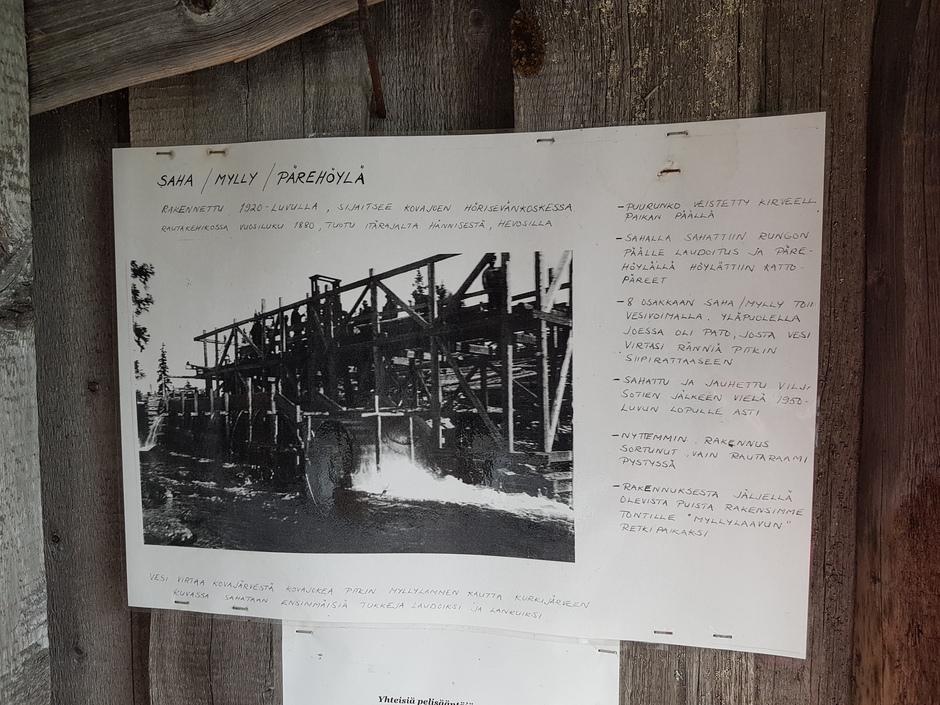 SAHA / MYLLY / PÄREHÖYLÄ
RAKENNETTU 1920-LUVULLA, SIJAITSEE KOVAJOEN HÖRISEVÄNKOSKESSA
RAUTAKEHIKOSSA VUOSILUKU 1880, TUOTU ITÄRAJALTA HÄNNISESTÄ, HEVOSILLA
-PUURUNKO VEISTETTY KIRVEELL
PAIKAN PÄÄLLÄ
-SAHALLA SAHATTIIN RUNGON
PÄÄLLE LAUDOITUS JA PÄRE-
HÖYLÄLLÄ HÖYLÄTTIIN KATTO-
PÄREET
-8 OSAKKAAN SAHA/MYLLY TOI
VESIVOIMALLA. YLÄPUOLELLA
JOESSA OLI PATO, JOSTA VESI
VIRTASI RÄNNIÄ PITKIN
SIIPIRATTAASEEN
-SAHATTU JA JAUHETTU VILJ
SOTIEN JÄLKEEN VIELÄ 1950-
LUVUN LOPULLE ASTI
-NYTTEMMIN RAKENNUS
SORTUNUT, VAIN RAUTARAAMI
PYSTYSSÄ
-RAKENNUKSESTA JÄLJELLÄ
OLEVISTA PUISTA RAKENSIMME
TONTILLE "MYLLYLAAVUN"
RETKIPAIKAKSI
VESI VIRTAA KOVAJÄRVESTÄ KOVAJOKEA PITKIN MYLLYLAMMEN KAUTTA KURKIJÄRVEEN
KUVASSA SAHATAAN ENSIMMÄISIÄ TUKKEJA LAUDOIKSI JA LANKUIKSI
Yhteisiä